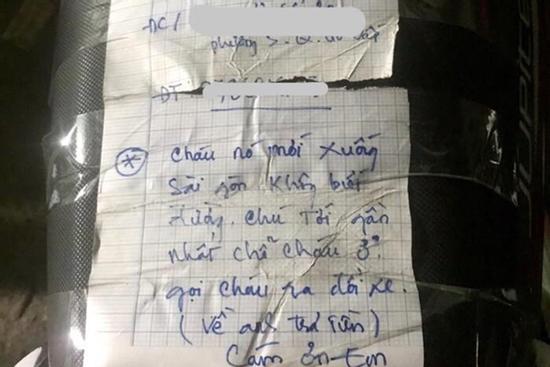 ĐC/
phường 5. Q. Gò Vấp
ĐT:
* cháu nó mới xuống
Sài gòn Không biết
đường. chú Tới gần
nhất chỗ cháu ở.
gọi cháu ra đổi xe.
(về anh trả tiền)
Cám ơn
JUPITE